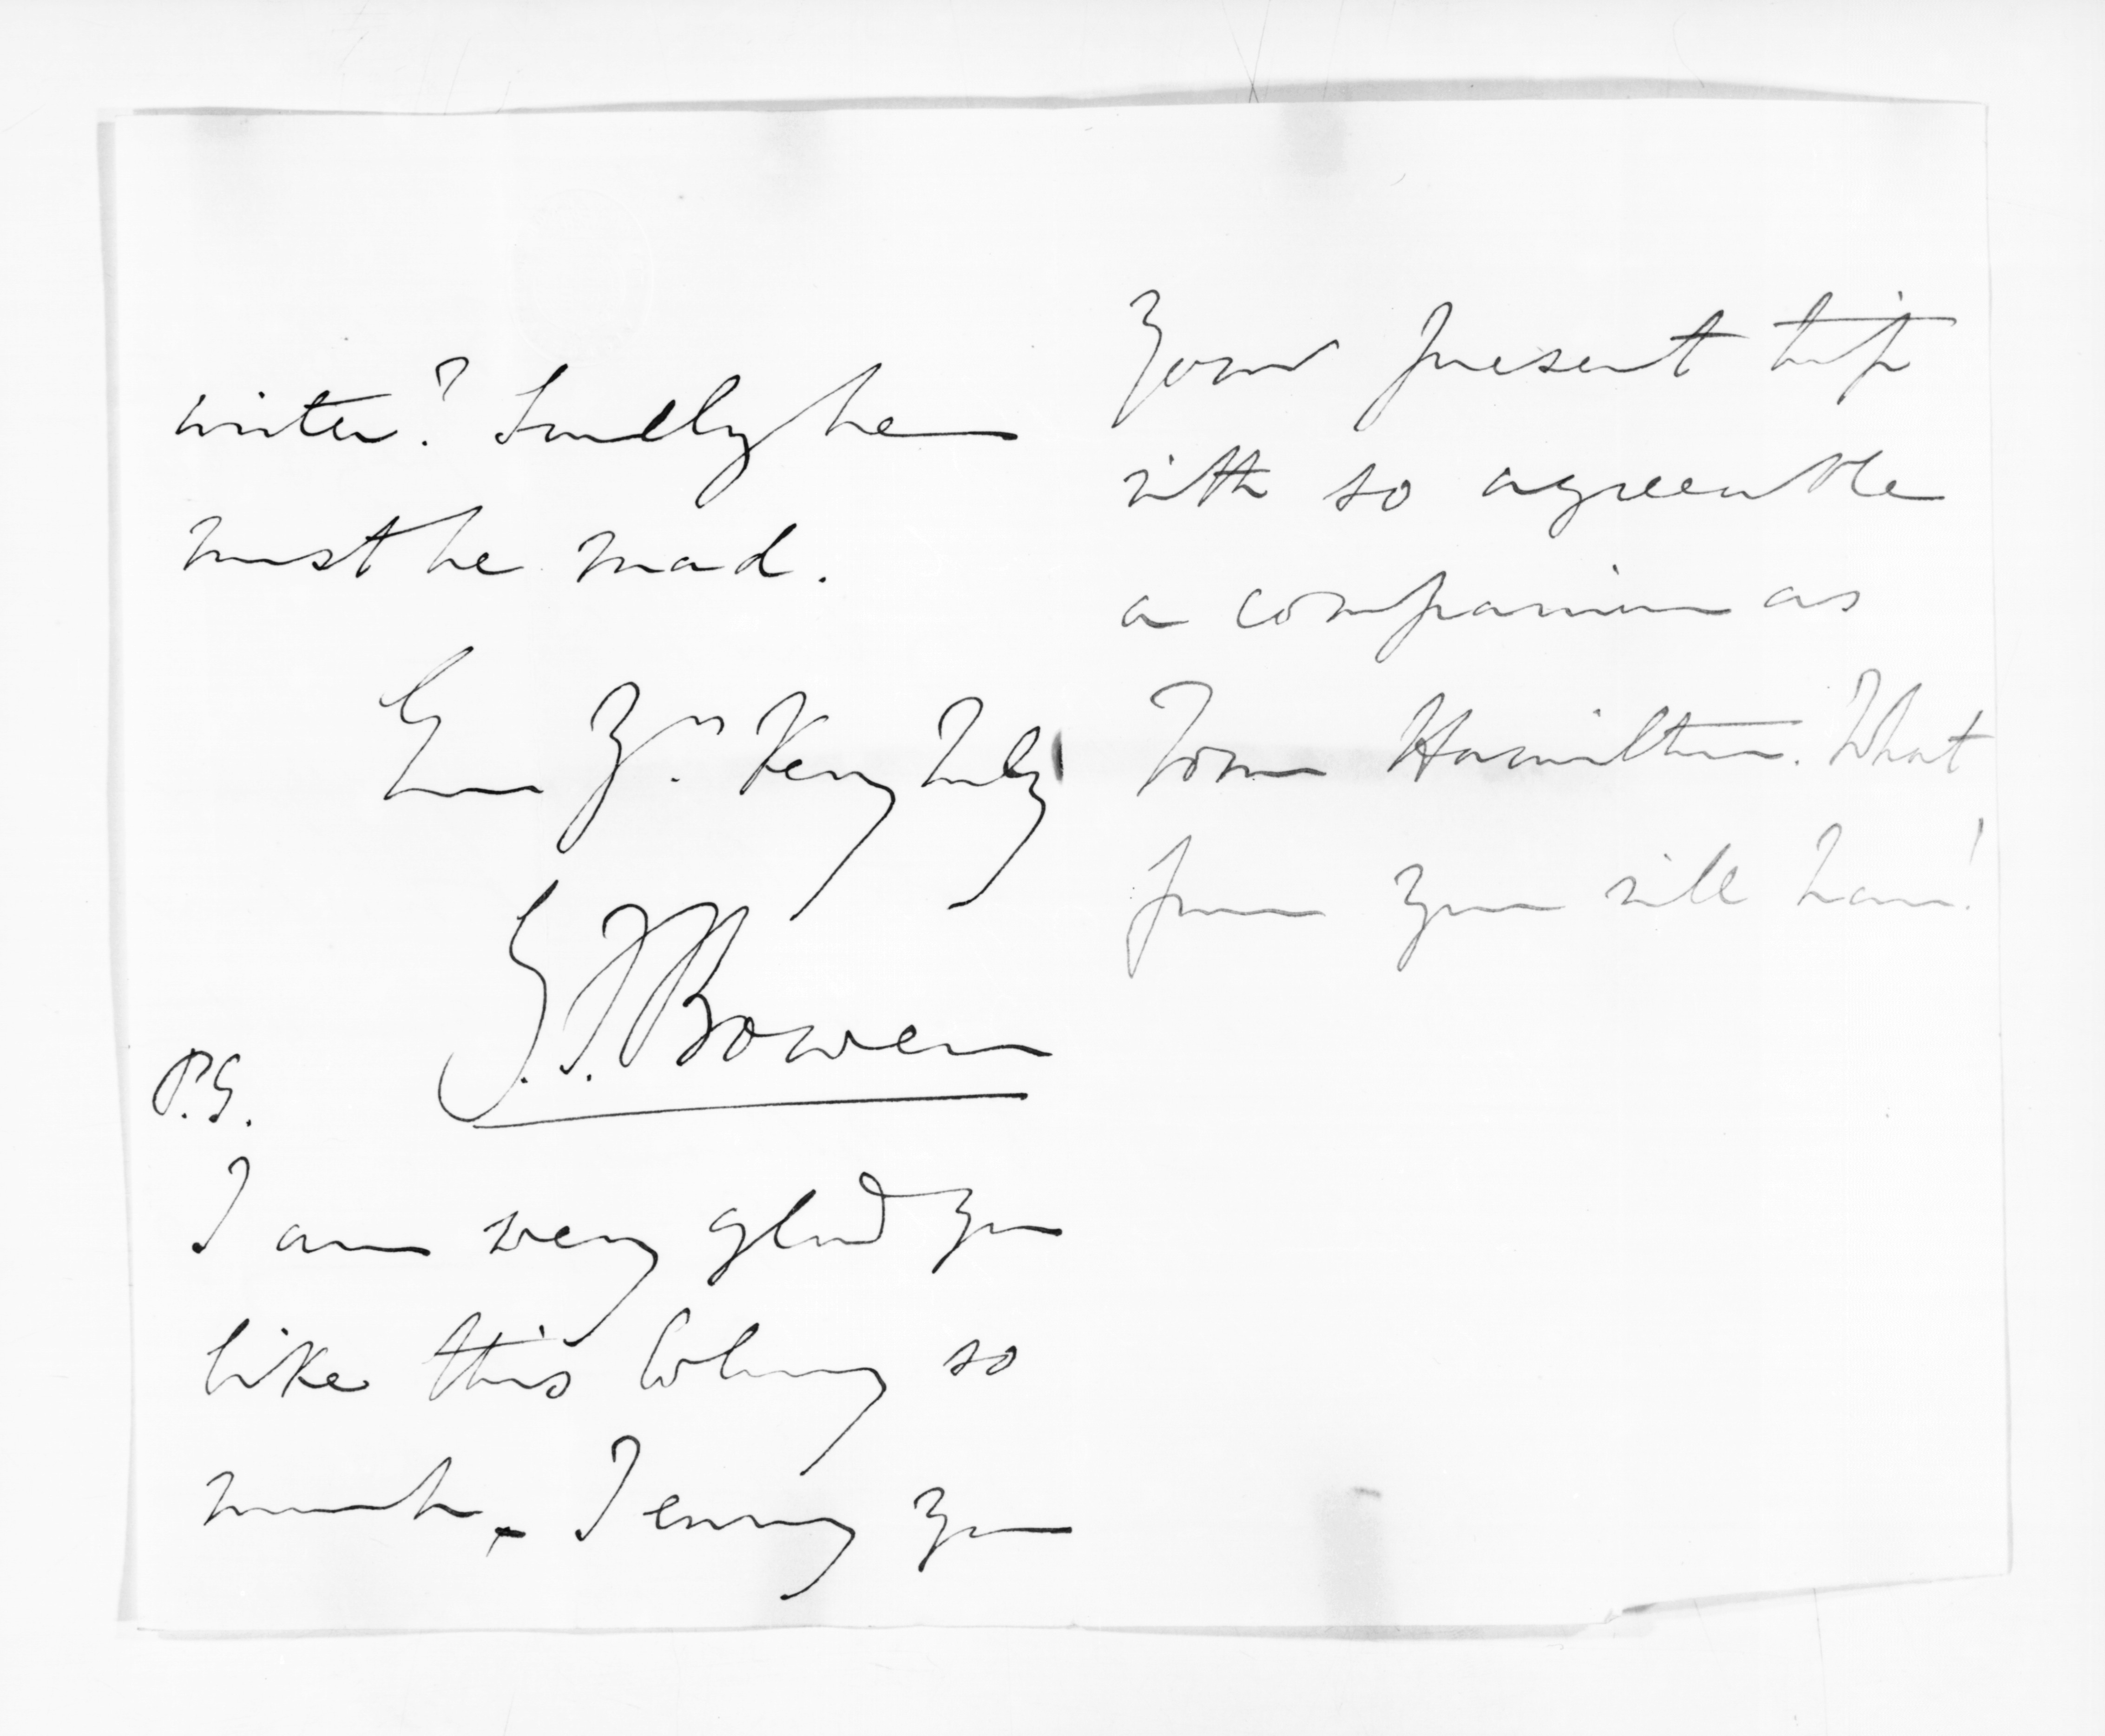 writer? Surely he
must be mad.
Ever Yrs. Very Truly
G.F. Bowen
P.S.
I am very glad you
like this Colony so
much - I envy you
your present trip
with so agreeable
a companion as
Tom Hamilton. What
fun you will have!